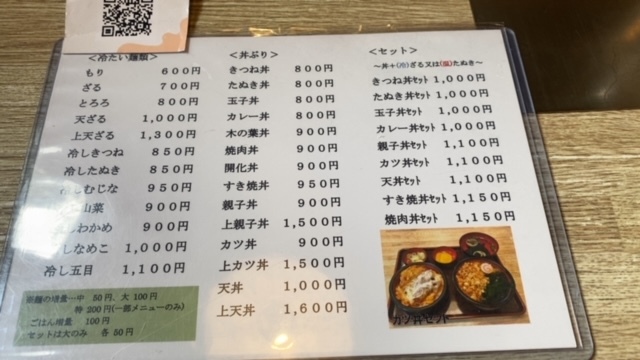 <冷たい麺類>
もり 600円
ざる 700円
とろろ 800円
天ざる 1,000円
上天ざる 1,300円
冷しきつね 850円
冷したぬき 850円
しむじな 950円
山菜 900円
わかめ 900円
しなめこ 1,000円
冷し五目 1,100円
麺の増量…中 50円、大 100円
特 200円(一部メニューのみ)
ごはん増量 100円
セットは大のみ 各 50円
<丼ぶり>
きつね丼 800円
たぬき丼 800円
玉子丼 800円
カレー丼 800円
木の葉丼 900円
焼肉丼 900円
開化丼 900円
すき焼丼 950円
親子丼 900円
上親子丼 1,500円
カツ丼 900円
上カツ丼 1,500円
天丼 1,000円
上天丼 1,600円
<セット>
~丼+(冷)ざる又は(温)たぬき~
きつね丼セット 1,000円
たぬき丼セット 1,000円
玉子丼セット 1,000円
カレー丼セット 1,000円
親子丼セット 1,100円
カツ丼セット 1,100円
天丼セット 1,100円
すき焼丼セット 1,150円
焼肉丼セット 1,150円
カツ丼セット